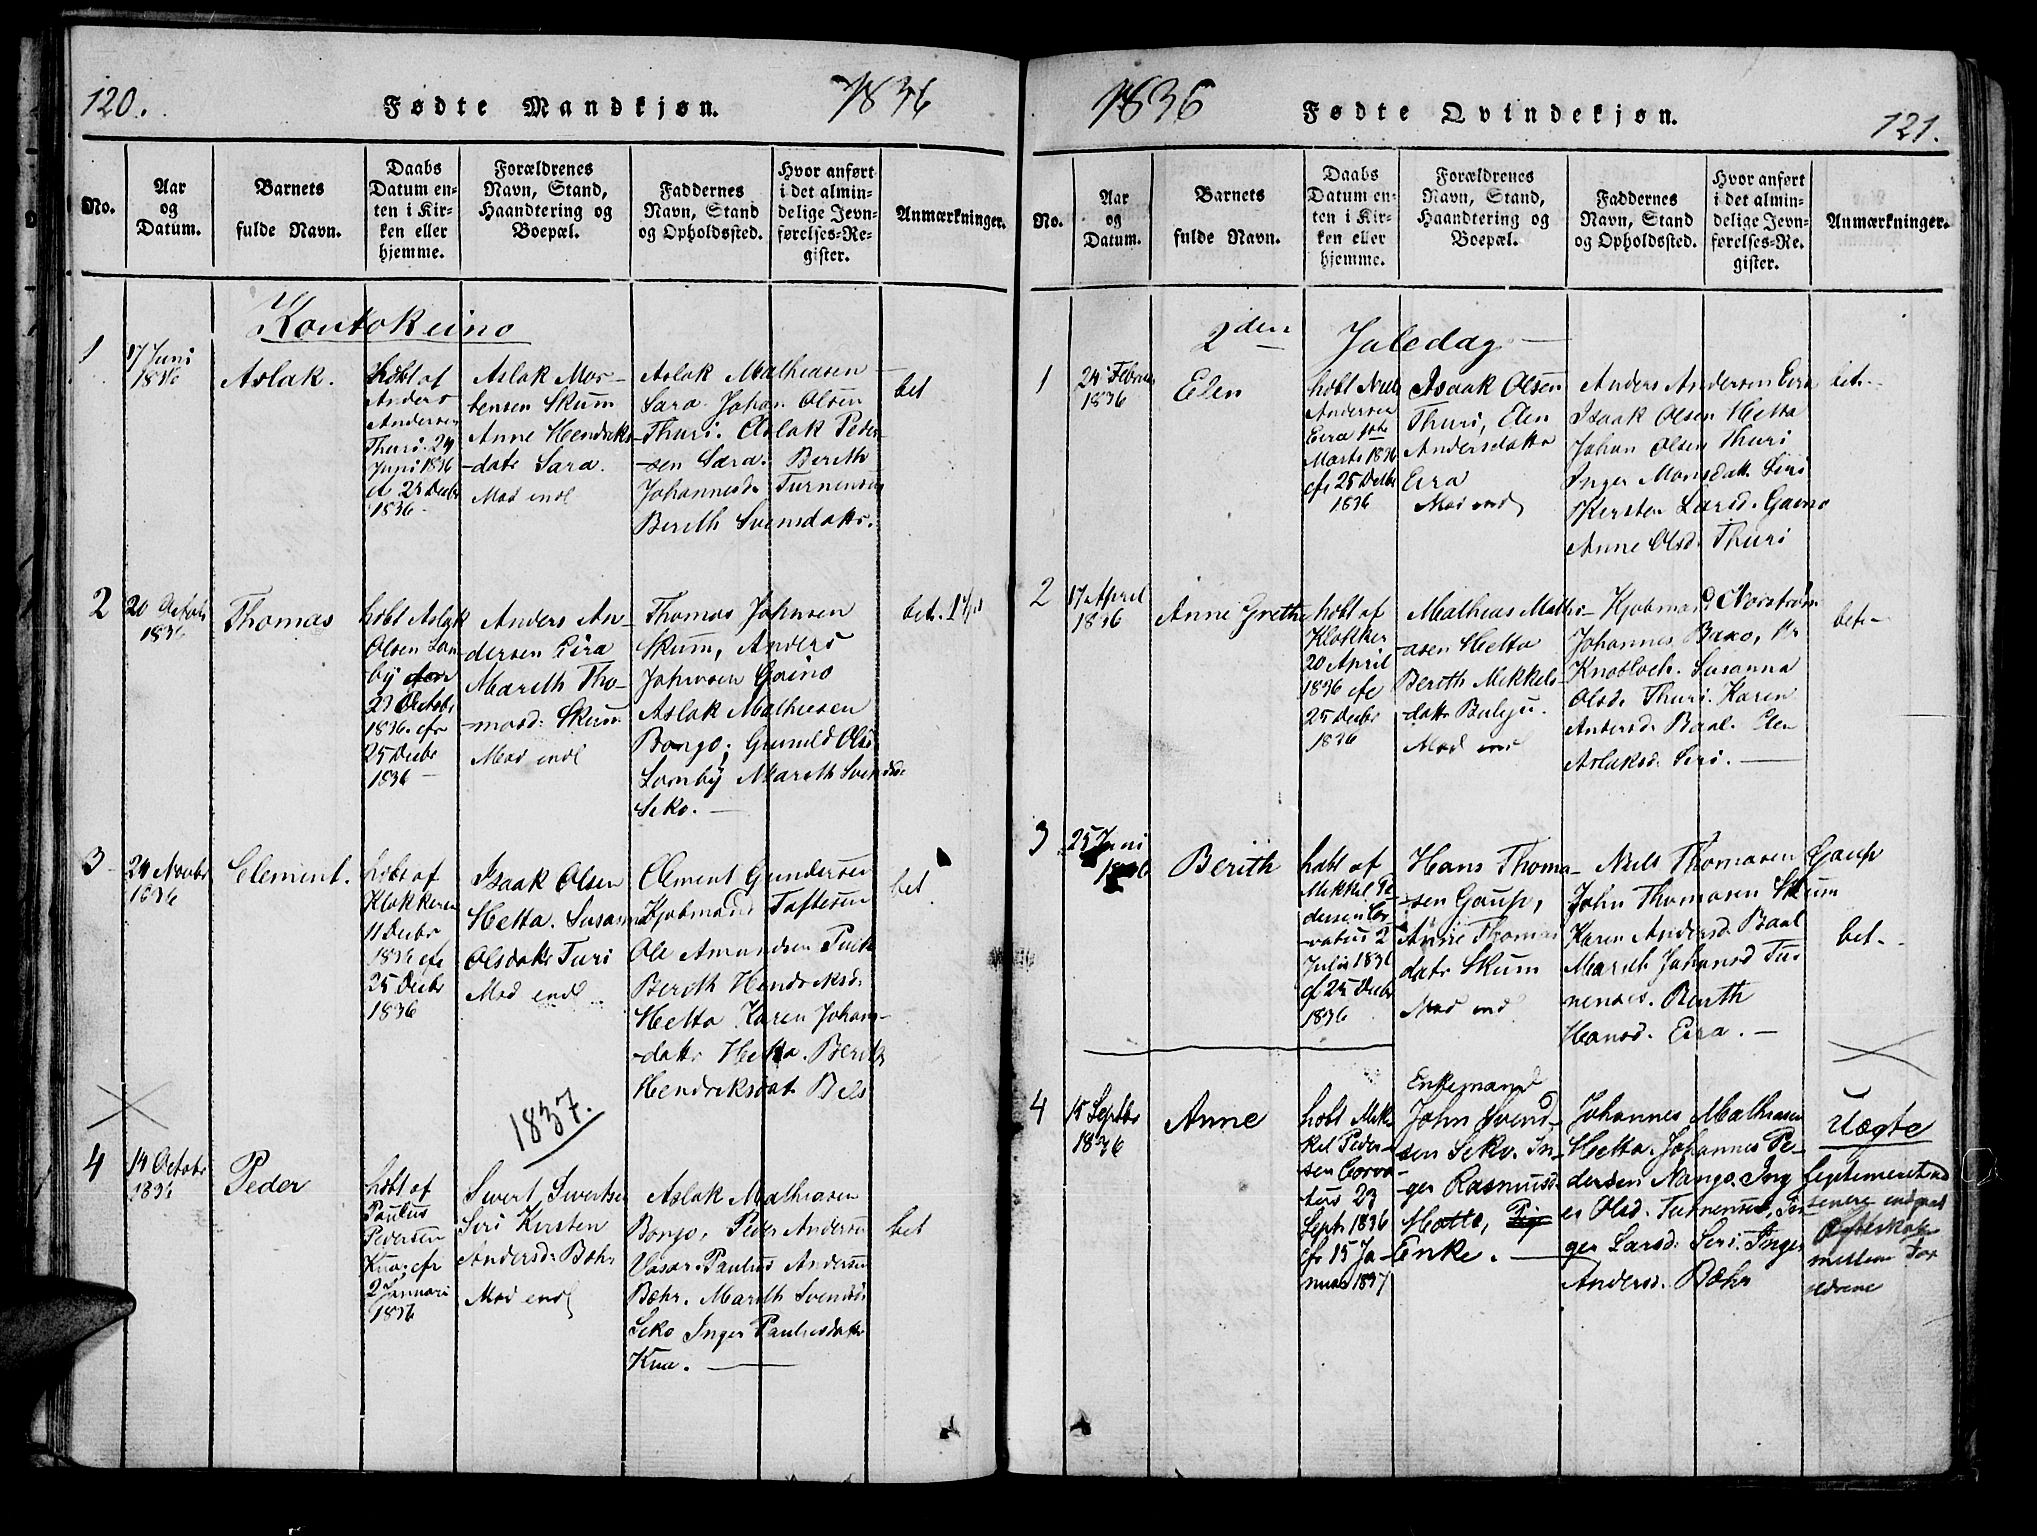 120.
Fødte Mandkjøn.
1836
No.
Aar
og
Datum.
Barnets
fulde Navn.
Daabs
Datum en-
ten i Kir-
ken eller
hjemme.
Forældrenes
Navn, Stand,
Haandtering og
Boepæl.
Faddernes
Navn, Stand
og Opholdssted.
Hvor anført
i det almin-
delige Jevn-
førelses-Re-
gister.
Anmærkninger.
Koutokeino
1
17 Juni
1836
Aslak.
hobt af
Anders
Andersen
Thuri 24
Juni 1836
cf 25 Decbr
1836
Aslak Mor-
tensen Skum
Anne Hendriks
-datr Sara.
Mod endl
Aslak Mathiesen
Sara. Johan Olsen
Thuri. Aslak Peder-
-sen Sara. Berith
Johannesd. Turnensis
Berith Svensdatr.
bet
2
20 Octob
1836
Thomas
hobt Aslak
Olsen Lom-
by
23 Octobr
1836. cfr
25 Decbr
1836
Anders An-
dersen Eira
Marith Tho-
-masd: Skum
Mod endl
Thomas Johnsen
Skum, Anders
Johnsen Gaino
Aslak Mathiesen
Bongo, Gunild Ols
Lomby Marith Svendsd:
Seko.
bet.
3
24 Novbr
1836
Clement.
hobt af
Klokkeren
11 Decbr
1836 cfr
25 Decbr
1836
Isaak Olsen
Hetta. Susanna
Olsdatr Turi
Mod endl
Clement Gundersen
Kjobmand Taftesen
Ole Amundsen
Berith Hendriksd:
Hetta Karen Johans-
-datr Hetta. Berith
Hendriksdat Bels
4
14 Octobr
1836
Peder
1837.
hobt af
Paulus
Pedersen
Knar cfr
2 Januari
1836
Sivert Sivertsen
Siri Kirsten
Andersd: Bæhr
Mod endl
Aslak Mathiasen
Bongo, Peder Andersen
Vasar. Paulus Andersen
Bæhr. Marith Svendsd:
Seko Inger Paulusdatr
Knar.
bet
1836
Fødte Qvindekjøn.
121.
No.
Aar
og
Datum.
Barnets
fulde Navn.
Daabs
Datum en-
ten i Kir-
ken eller
hjemme.
Forældrenes
Navn, Stand,
Haandtering og
Boepæl.
Faddernes
Navn, Stand
og Opholdssted.
Hvor anført
i det almin-
delige Jevn-
førelses-Re-
gister.
Anmærkninger.
2den Juledag
1
24 Februar
1836
Elen
hobt Niels
Andersen
Eira 1ste
Marts 1836
cfr 25 Decbr
1836
Isaak Olsen
Thuri, Elen
Andersdatr
Eira
Mod endl
Anders Andersen Eira
Isaak Olsen Hetta
Johan Olsen Thuri
Inger Monsdatr Siri
Kirsten Larsd. Gaino
Anne Olsd. Thuri
bet.
2
17 April
1836
Anne Grethe
hobt af
Klokker
20 April
1836 cfr
25 Decbr
1836
Mathias Mathi-
-asen Hetta
Berith Mikkels-
datr Buljo.
Mod endl
Kjobmand Norstrøm
Johannes Baxo, Hr
Knobloch. Susanna
Olsd. Thuri. Karen
Andersd. Baal. Elen
Aslaksd. Siri.
bet.
3
25 Juni
1836
Berith
hobt af
Mikkel Pe-
dersen Cor-
-vatus 2
Julii 1836
cf 25 Decbr
1836
Hans Thoma-
-sen Gaup,
Anne Thomas
datr Skum
Mod endl
Niels Thomasen Gaup
John Thomasen Skum
Karen Andersd. Baal
Marith Johansd Tur
nensis. Berith
Hansd. Eira.
bet.
4
15 Septbr
1836
Anne
hobt Mik-
kel Peder-
sen Corva-
tus 23
Sept. 1836
cfr 15 Ja-
nuar 1837
Enkemand
John Svend-
sen Seko. In-
ger Rasmusd:
Motte,
Enke.
Johannes Mathiasen
Hetta. Johannes Pe-
dersen Nango. Ing
er Olsd. Turnensis, In-
ger Larsd: Siri. Inger
Andersd. Bæhr
Uægte
Legitimeret ved
senere indgaaet
Ægteskab
mellem For
ældrene